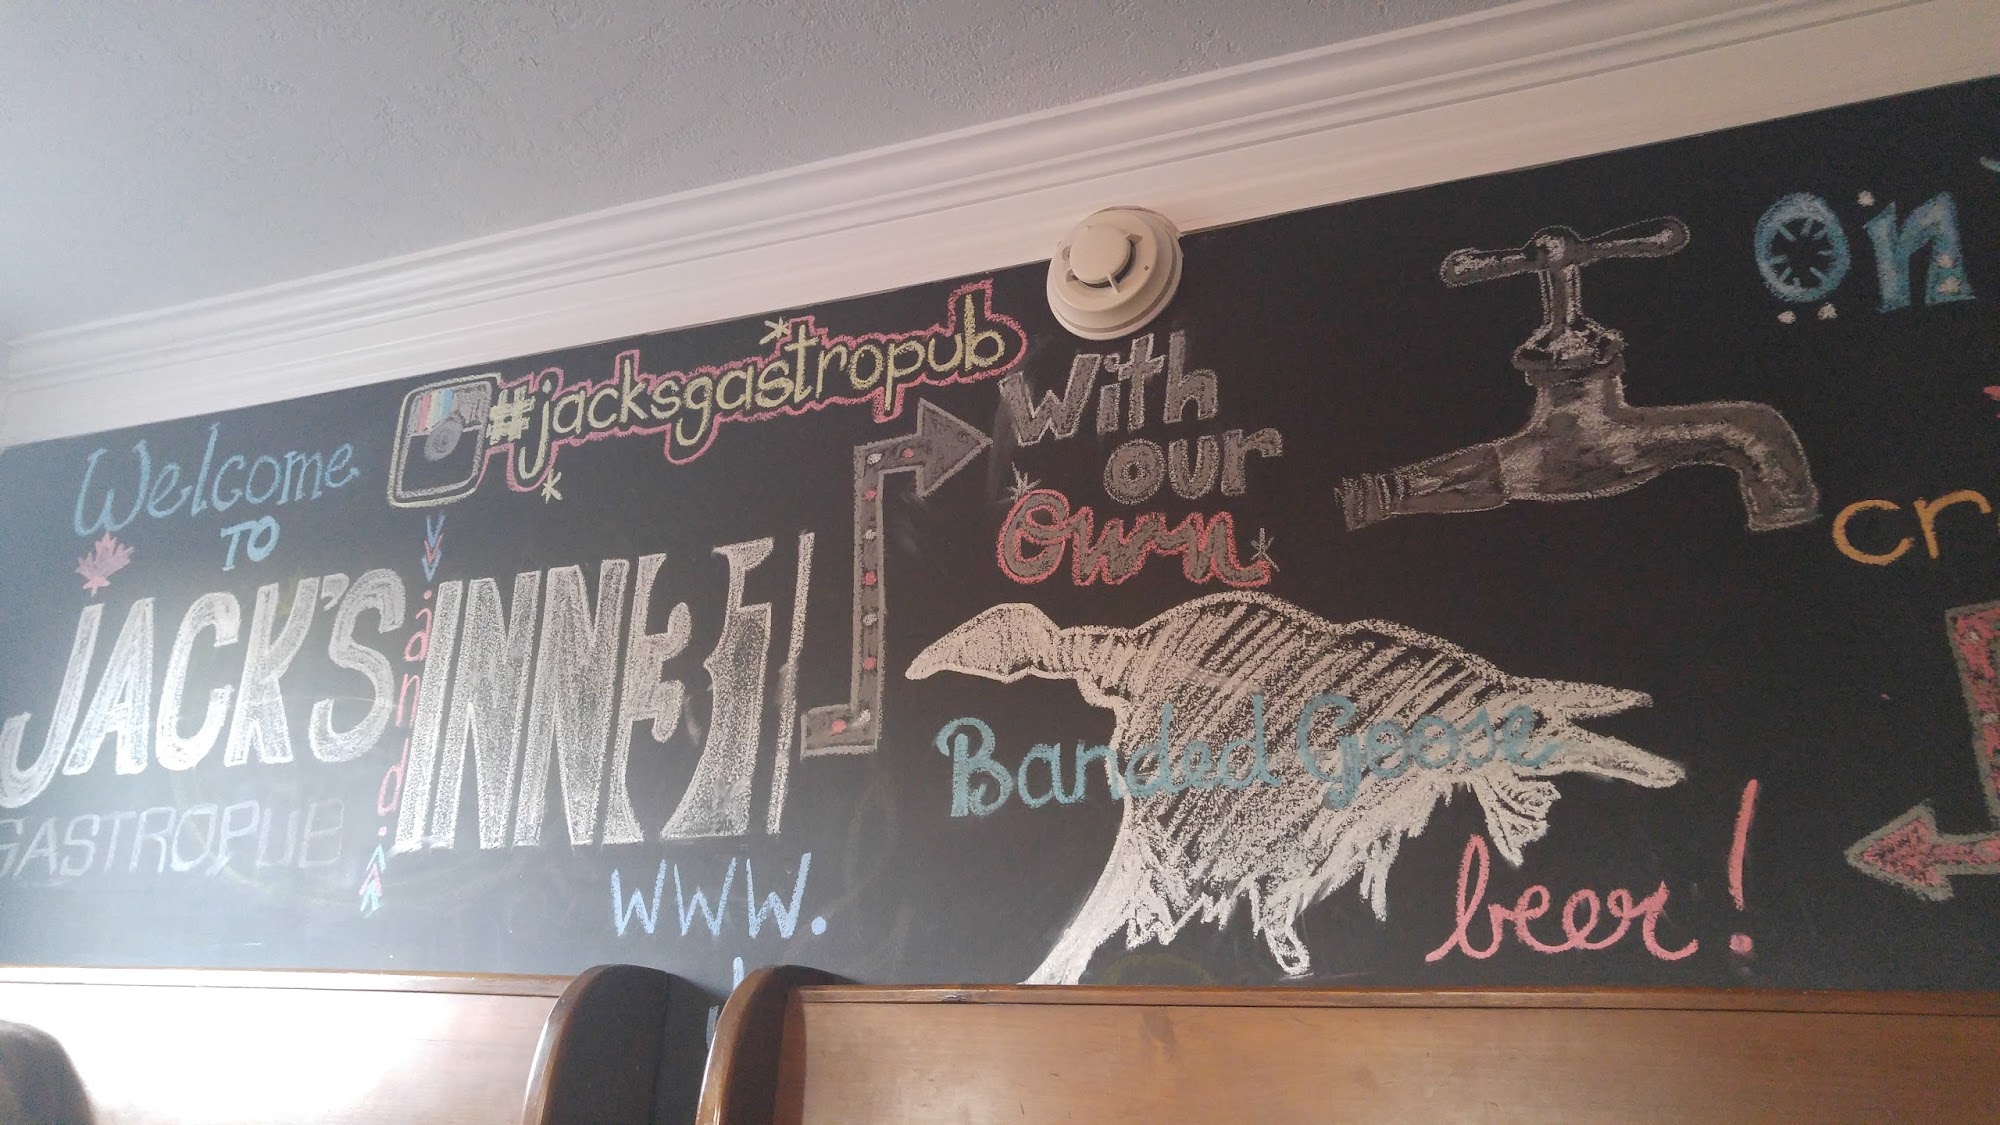 Welcome
TO
JACK'S
GASTROPUB
and
INN 31
#jacksgastropub
www.
With
our
Own
Banded Goose
beer!
On
cr